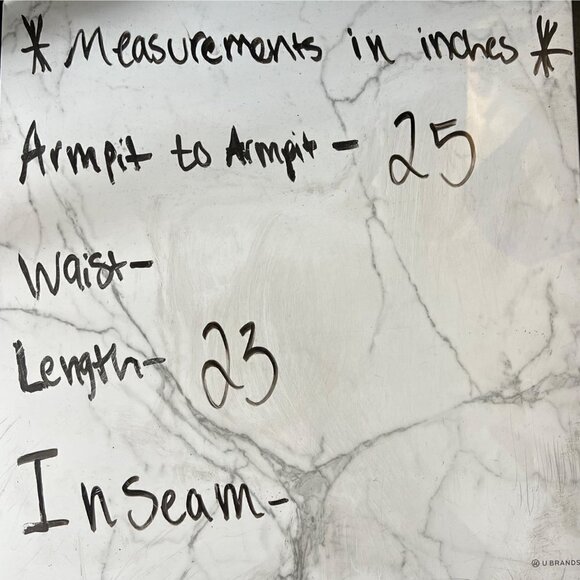 * Measurements in inches *
Armpit to Armpit - 25
Waist-
Length- 23
Inseam-
U BRANDS